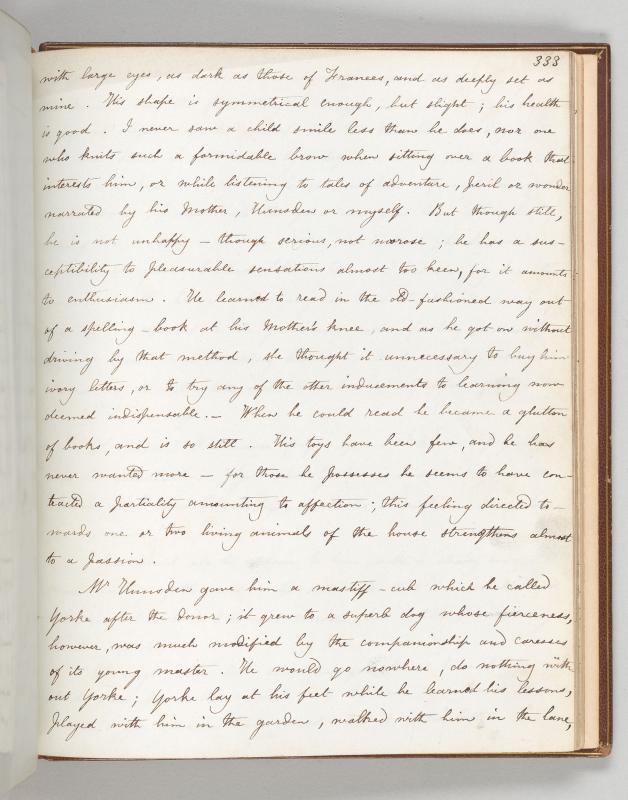 333
with large eyes, as dark as those of Frances, and as deeply set as
mine. His shape is symmetrical enough, but slight; his health
is good. I never saw a child smile less than he does, nor one
who knits such a formidable brow when sitting over a book that
interests him, or while listening to tales of adventure, peril or wonder
narrated by his Mother, Hunsden or myself. But though still,
he is not unhappy — though serious, not morose; he has a sus-
ceptibility to pleasurable sensations almost too keen, for it amounts
to enthusiasm. He learned to read in the old-fashioned way out
of a spelling-book at his Mother's knee, and as he got on without
driving by that method, she thought it unnecessary to buy him
ivory letters, or to try any of the other inducements to learning now
deemed indispensable. — When he could read he became a glutton
of books, and is so still. His toys have been few, and he has
never wanted more — for those he possesses he seems to have con-
tracted a partiality amounting to affection; this feeling directed to-
wards one or two living animals of the house strengthens almost
to a passion.
Mr Hunsden gave him a mastiff-cub which he called
Yorke after the donor; it grew to a superb dog whose fierceness,
however, was much modified by the companionship and caresses
of its young master. He would go nowhere, do nothing with-
out Yorke; Yorke lay at his feet while he learned his lessons,
played with him in the garden, walked with him in the lane,